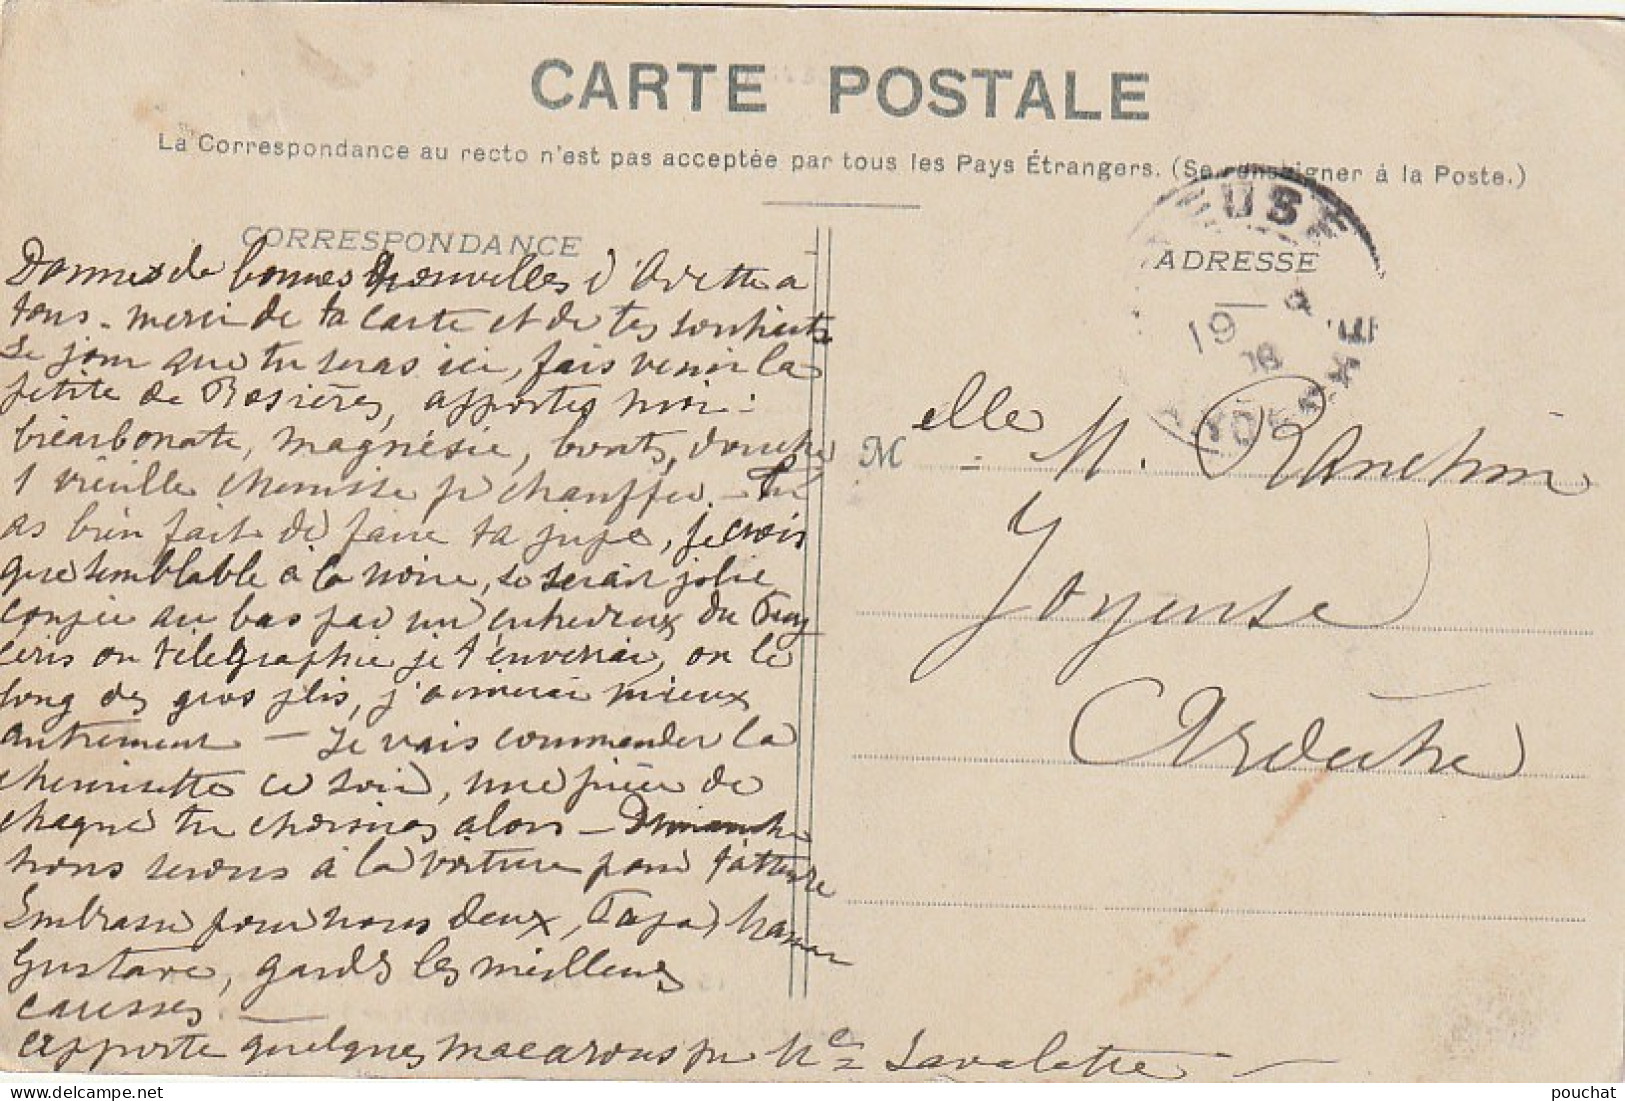 CARTE POSTALE
La Correspondance au recto n'est pas acceptée par tous les Pays Étrangers. (Se renseigner à la Poste.)
CORRESPONDANCE
Donnes de bonnes nouvelles d'Arlette a
tous. merci de ta carte et de tes souhaits
Le jour que tu seras ici, fais venir la
petite de Rosières, apportes moi:
bicarbonate, magnésie, bouts, douche
1 vieille chemise pr chauffer. Tu
as bien fait de faire ta jupe, je crois
que semblable à la noire, se serait jolie
coupée au bas par un entredeux du Puy
écris ou télégraphie je t'enverrai, ou le
long des gros plis, j'aimerai mieux
autrement — Je vais commander la
chemisette ce soir, une pièce de
chaque tu choisiras alors — Dimanche
nous serons à la voiture pour t'attendre
Embrasse pour nous deux, Papa, Maman
Gustave, gardes les meilleures
caresses. —
apporte quelques macarons pr Mes Lavalette —
ADRESSE
USE
19
Melle M. Ranchin
Joyeuse
Ardèche
pouchat